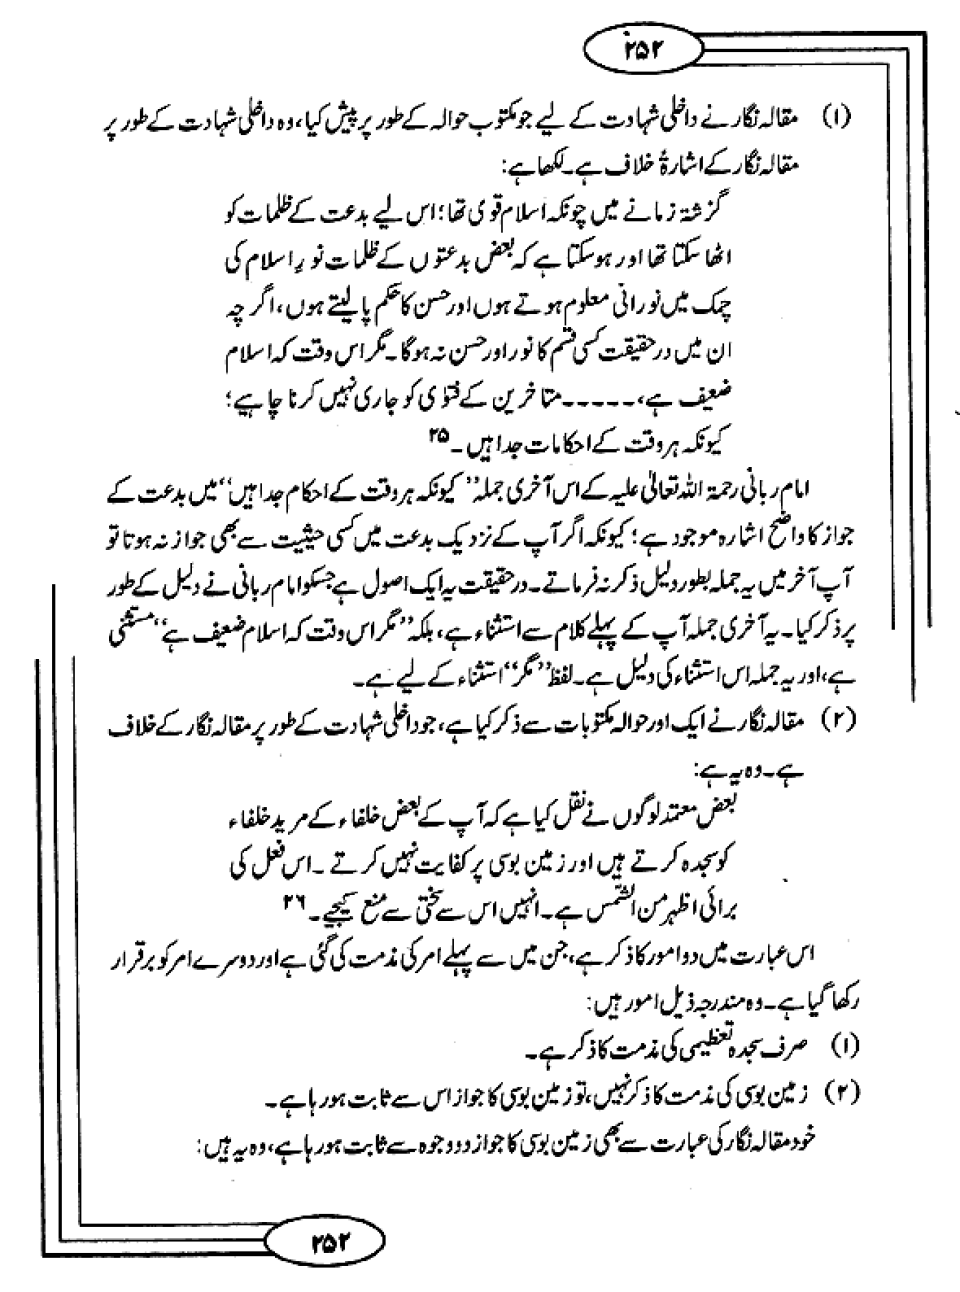 ۲۵۲
(۱) مقالہ نگار نے داخلی شہادت کے لیے جو مکتوب حوالہ کے طور پر پیش کیا، وہ داخلی شہادت کے طور پر
مقالہ نگار کے اشارۃً خلاف ہے۔ لکھا ہے:
گزشتہ زمانے میں چونکہ اسلام قوی تھا؛ اس لیے بدعت کے ظلمات کو
اٹھا سکتا تھا اور ہوسکتا ہے کہ بعض بدعتوں کے ظلمات نورِ اسلام کی
چمک میں نورانی معلوم ہوتے ہوں اور حسن کا حکم پالیتے ہوں، اگرچہ
ان میں درحقیقت کسی قسم کا نور اور حسن نہ ہوگا۔ مگر اس وقت کہ اسلام
ضعیف ہے،۔۔۔۔۔ متاخرین کے فتوٰی کو جاری نہیں کرنا چاہیے؛
کیونکہ ہر وقت کے احکامات جدا ہیں۔ ۲۵
امام ربانی رحمۃ اللہ تعالیٰ علیہ کے اس آخری جملہ ”کیونکہ ہر وقت کے احکام جدا ہیں“ میں بدعت کے
جواز کا واضح اشارہ موجود ہے؛ کیونکہ اگر آپ کے نزدیک بدعت میں کسی حیثیت سے بھی جواز نہ ہوتا تو
آپ آخر میں یہ جملہ بطور دلیل ذکر نہ فرماتے۔ درحقیقت یہ ایک اصول ہے جسکو امام ربانی نے دلیل کے طور
پر ذکر کیا۔ یہ آخری جملہ آپ کے پہلے کلام سے استثناء ہے، بلکہ ”مگر اس وقت کہ اسلام ضعیف ہے“ مستثنی
ہے، اور یہ جملہ اس استثناء کی دلیل ہے۔ لفظ ”مگر“ استثناء کے لیے ہے۔
(۲) مقالہ نگار نے ایک اور حوالہ مکتوبات سے ذکر کیا ہے، جو داخلی شہادت کے طور پر مقالہ نگار کے خلاف
ہے۔ وہ یہ ہے:
بعض معتمد لوگوں نے نقل کیا ہے کہ آپ کے بعض خلفاء کے مرید خلفاء
کو سجدہ کرتے ہیں اور زمین بوسی پر کفایت نہیں کرتے۔ اس فعل کی
برائی اظہر من الشمس ہے۔ انہیں اس سے سختی سے منع کیجیے۔ ۲۶
اس عبارت میں دو امور کا ذکر ہے، جن میں سے پہلے امر کی مذمت کی گئی ہے اور دوسرے امر کو برقرار
رکھا گیا ہے۔ وہ مندرجہ ذیل امور ہیں:
(۱) صرف سجدہ تعظیمی کی مذمت کا ذکر ہے۔
(۲) زمین بوسی کی مذمت کا ذکر نہیں، تو زمین بوسی کا جواز اس سے ثابت ہو رہا ہے۔
خود مقالہ نگار کی عبارت سے بھی زمین بوسی کا جواز دو وجوہ سے ثابت ہو رہا ہے، وہ یہ ہیں:
۲۵۲